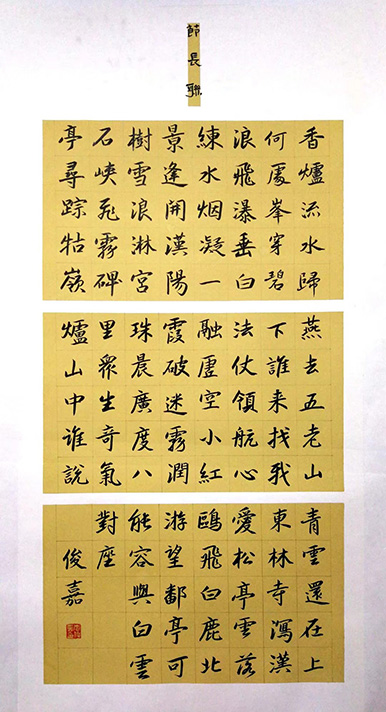 節長聯
香爐流水歸
何處峯穿碧
浪飛瀑垂白
練水烟凝一
景逢開漢陽
樹雪浪淋宮
石峽霧碑
亭尋踪牯嶺
燕去五老山
下誰来找我
法仗領航心
融虛空小紅
霞破迷霧潤
珠晨廣度八
里眾生奇氣
爐山中谁說
青雲還在上
東林寺瀉漢
愛松亭雲落
鷗飛白鹿北
游望鄱亭可
能容與白雲
對座
俊嘉